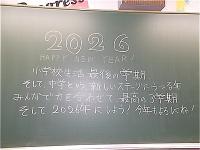 2026
HAPPY NEW YEAR!
小学校生活 最後の学期
そして 中学という 新しいステージにうつる年
みんなで力を合わせて 最高の3学期
そして 2026年にしよう！今年もよろしくね！